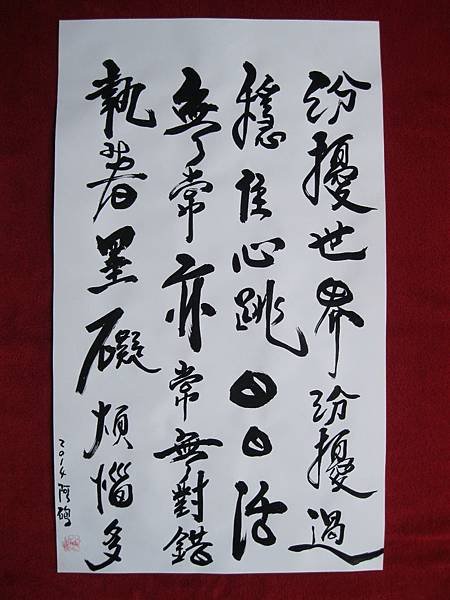 紛擾世界紛擾過
穩住心跳日日活
無常亦常無對錯
執著罣礙煩惱多
2014 阿